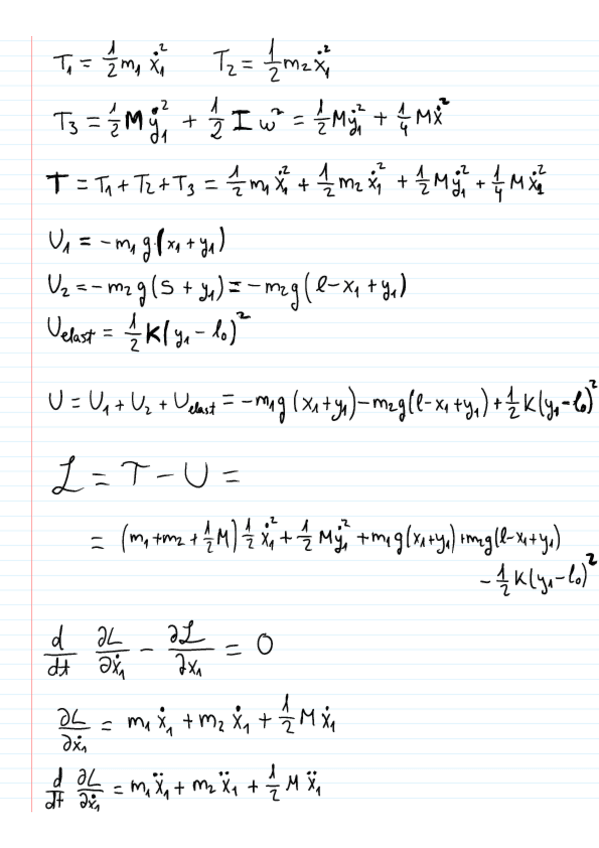 T₁ = 1/2 m₁ ẋ₁² T₂ = 1/2 m₂ ẋ₁²
T₃ = 1/2 M ẏ₁² + 1/2 I ω² = 1/2 M ẏ₁² + 1/4 M ẋ²
T = T₁ + T₂ + T₃ = 1/2 m₁ ẋ₁² + 1/2 m₂ ẋ₁² + 1/2 M ẏ₁² + 1/4 M ẋ₁²
U₁ = -m₁ g (x₁ + y₁)
U₂ = -m₂ g (S + y₁) = -m₂ g (l - x₁ + y₁)
U_elast = 1/2 K (y₁ - l₀)²
U = U₁ + U₂ + U_elast = -m₁ g (x₁ + y₁) - m₂ g (l - x₁ + y₁) + 1/2 K (y₁ - l₀)²
ℒ = T - U =
= (m₁ + m₂ + 1/2 M) 1/2 ẋ₁² + 1/2 M ẏ₁² + m₁ g (x₁ + y₁) + m₂ g (l - x₁ + y₁)
- 1/2 K (y₁ - l₀)²
d/dt ∂L/∂ẋ₁ - ∂ℒ/∂x₁ = 0
∂L/∂ẋ₁ = m₁ ẋ₁ + m₂ ẋ₁ + 1/2 M ẋ₁
d/dt ∂L/∂ẋ₁ = m₁ ẍ₁ + m₂ ẍ₁ + 1/2 M ẍ₁